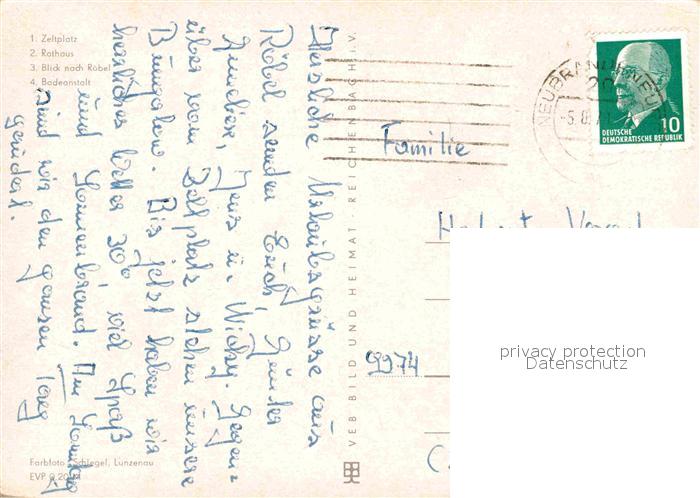 1. Zeltplatz
2. Rathaus
3. Blick nach Röbel
4. Badeanstalt
Herzliche Urlaubsgrüsse aus
Röbel senden Erich, Günter
Anneliese, Jens u. Vicky. Gegen=
über vom Zeltplatz stehen unsere
Bungalow. Bis jetzt haben wir
herrliches Wetter 30° viel Spaß
und Sonnenbrand. Am Sonntag
sind wir den ganzen Tag
gerudert.
Farbfoto: Schlegel, Lunzenau
EVP 0,20 M
VEB BILD UND HEIMAT REICHENBACH I. V.
NEUBRANDENBURG
20
10
DEUTSCHE
DEMOKRATISCHE REPUBLIK
Familie
Herbert
9274
privacy protection
Datenschutz